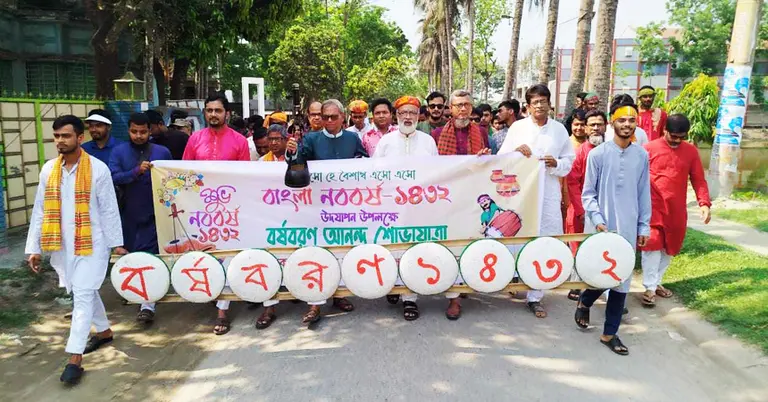 এসো হে বৈশাখ এসো এসো
শুভ
নববর্ষ
-১৪৩২
বাংলা নববর্ষ-১৪৩২
উদযাপন উপলক্ষে
বর্ষবরণ আনন্দ শোভাযাত্রা
বর্ষবরণ১৪৩২